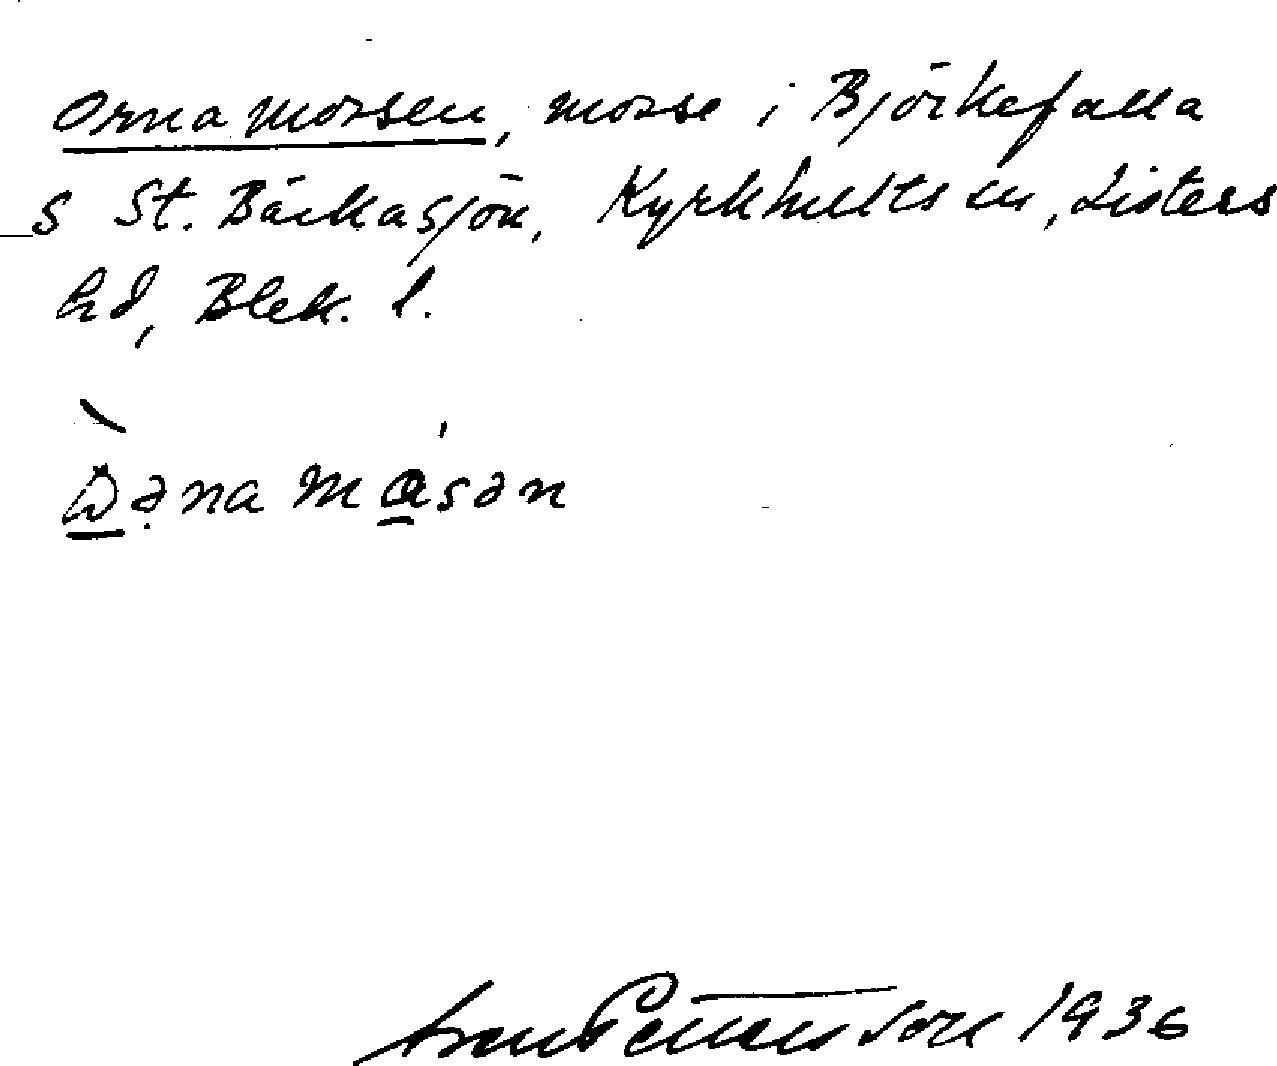 Ornamossen, mosse i Björkefalla
S St. Bäckasjön, Kyrkhults sn, Listers
hd, Blek. l.
Pettersson 1936